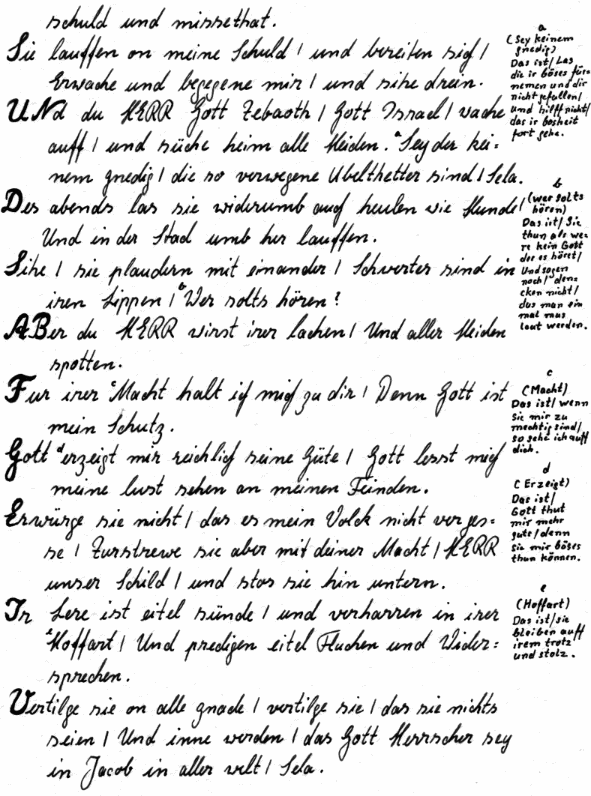 schuld und missethat.
Sie lauffen on meine Schuld / und bereiten sich /
Erwache und begegene mir / und sihe drein.
UND du HERR Gott Zebaoth / Gott Israel / wache
auff / und süche heim alle Heiden. a Sey der kei=
nem gnedig / die so verwegene Ubelthetter sind / Sela.
Des abends las sie widerumb auch heulen wie Hunde /
Und in der Stad umb her lauffen.
Sihe / sie plaudern mit einander / Schwerter sind in
iren Lippen / b Wer solts hören?
ABer du HERR wirst irer lachen / Und aller Heiden
spotten.
Fur irer c Macht halt ich mich zu dir / Denn Gott ist
mein Schutz.
Gott d erzeigt mir reichlich seine Güte / Gott lesst mich
meine lust sehen an meinen Feinden.
Erwürge sie nicht / das es mein Volck nicht verges=
se / Zurstrewe sie aber mit deiner Macht / HERR
unser Schild / und stos sie hin untern.
Ir Lere ist eitel sünde / und verharren in irer
e Hoffart / Und predigen eitel Fluchen und Wider=
sprechen.
Vertilge sie on alle gnade / vertilge sie / das sie nichts
seien / Und inne werden / das Gott Herrscher sey
in Jacob in aller welt / Sela.
a
(Sey keinem
gnedig)
Das ist / Las
die ir böses für=
nemen und dir
nicht gefallen /
und hilff nicht /
das ir bosheit
fort gehe.
b
(wer solts
hören)
Das ist / Sie
thun als we=
re kein Gott
der es höret /
Und sagen
noch / den=
cken nicht /
das man ein
mal mus
laut werden.
c
(Macht)
Das ist / wenn
Sie mir zu
mechtig sind /
so sehe ich auff
dich.
d
(Erzeigt)
Das ist /
Gott thut
mir mehr
guts / denn
sie mir böses
thun können.
e
(Hoffart)
Das ist / sie
bleiben auff
irem trotz
und stolz.